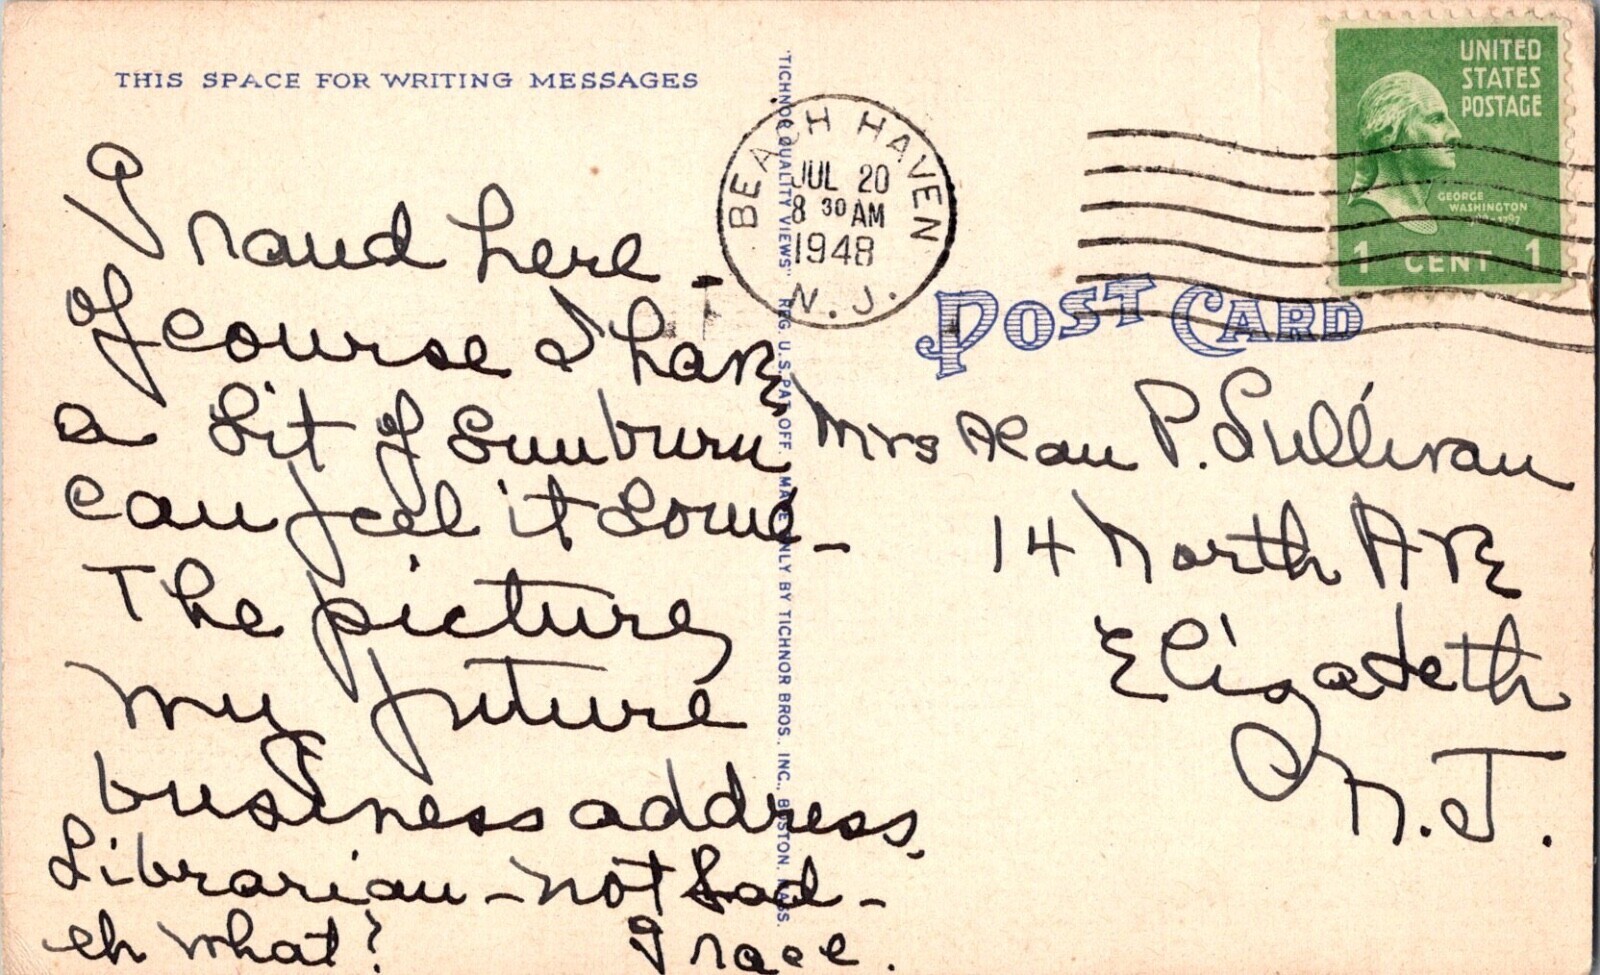 THIS SPACE FOR WRITING MESSAGES
Grand here -
of course I have
a bit of sunburn
can feel it some -
The picture,
my future
business address,
Librarian - not bad -
eh what? Grace.
"TICHNOR QUALITY VIEWS" REG. U.S. PAT. OFF. MADE ONLY BY TICHNOR BROS., INC., BOSTON, MASS.
BEACH HAVEN
JUL 20
8 30 AM
1948
N. J.
UNITED
STATES
POSTAGE
GEORGE
WASHINGTON
1 CENT 1
POST CARD
Mrs Alan P. Sullivan
14 North Ave
Elizabeth
N. J.